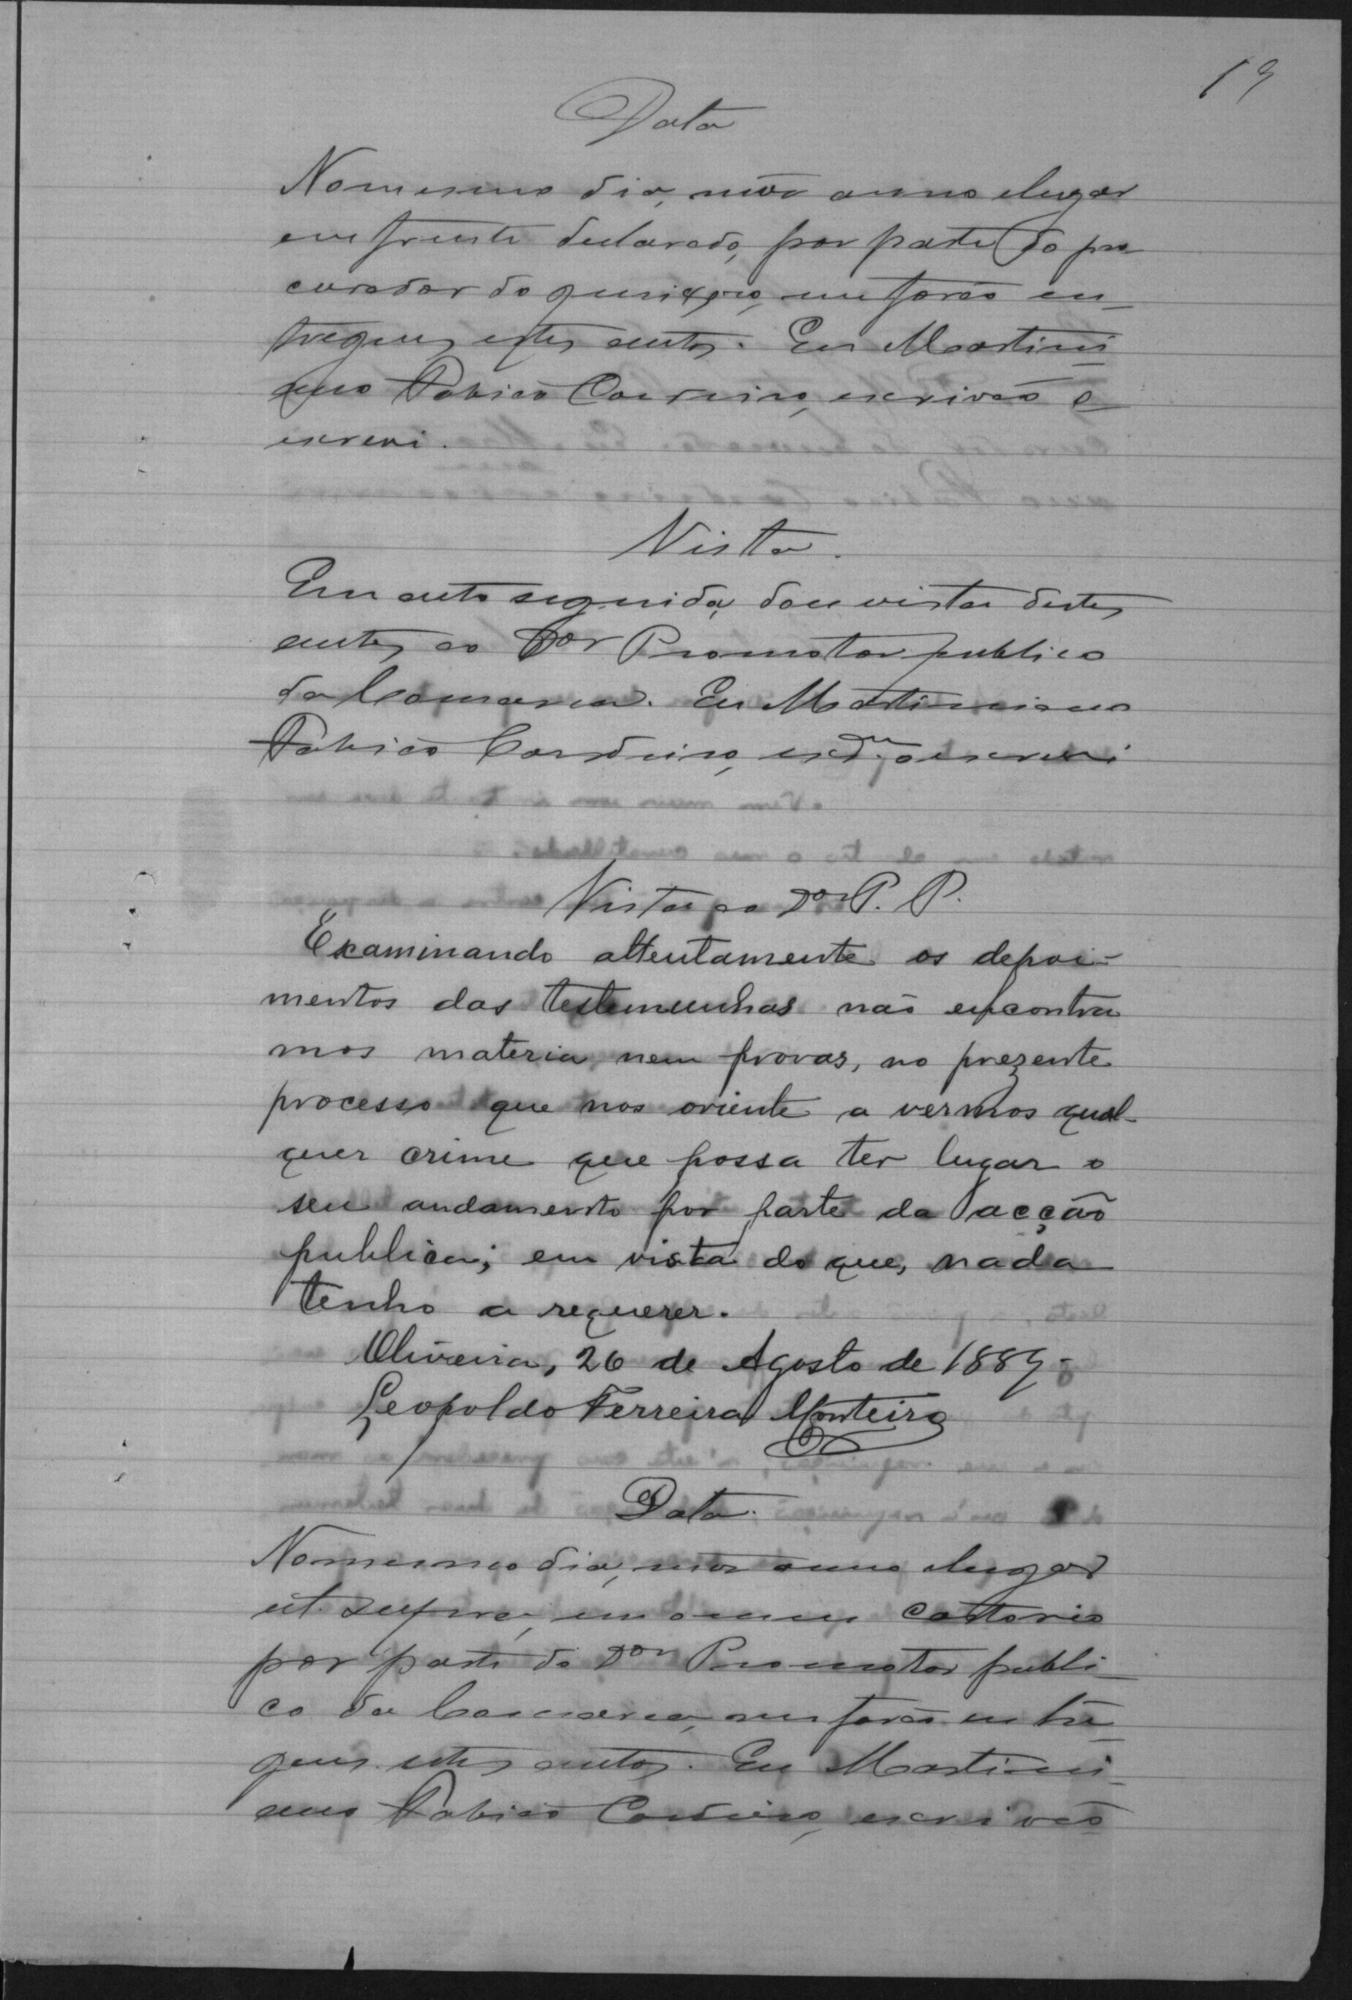 19
Data
No mesmo dia, mês anno e lugar
em frente declarado, por parte do pro
curador do queixoso, me forão en-
tregues estes autos. Eu Martini
ano Fabião Cordeiro, escrivão o
escrevi.
Vista.
Em acto seguida, dou vista destes
autos ao Dor Promotor publico
da Comarca. Eu Martiniano
Fabião Cordeiro, escrm o escrevi
Vista ao Dor P. P.
Examinando attentamente os depoi-
mentos das testemunhas não encontra
mos materia nem provas, no prezente
processo que nos oriente a vermos qual-
quer crime que possa ter lugar o
seu andamento por parte da acção
publica; em vista do que, nada
tenho a requerer.
Oliveira, 26 de Agosto de 1889-
Leopoldo Ferreira Monteiro
Data.
No mesmo dia, mês anno e lugar
ut supra, em o meu cartorio
por parte do Dor Promotor publi-
co da Comarca, me forão entre-
gues estes autos. Eu Martini-
ano Fabião Cordeiro, escrivão